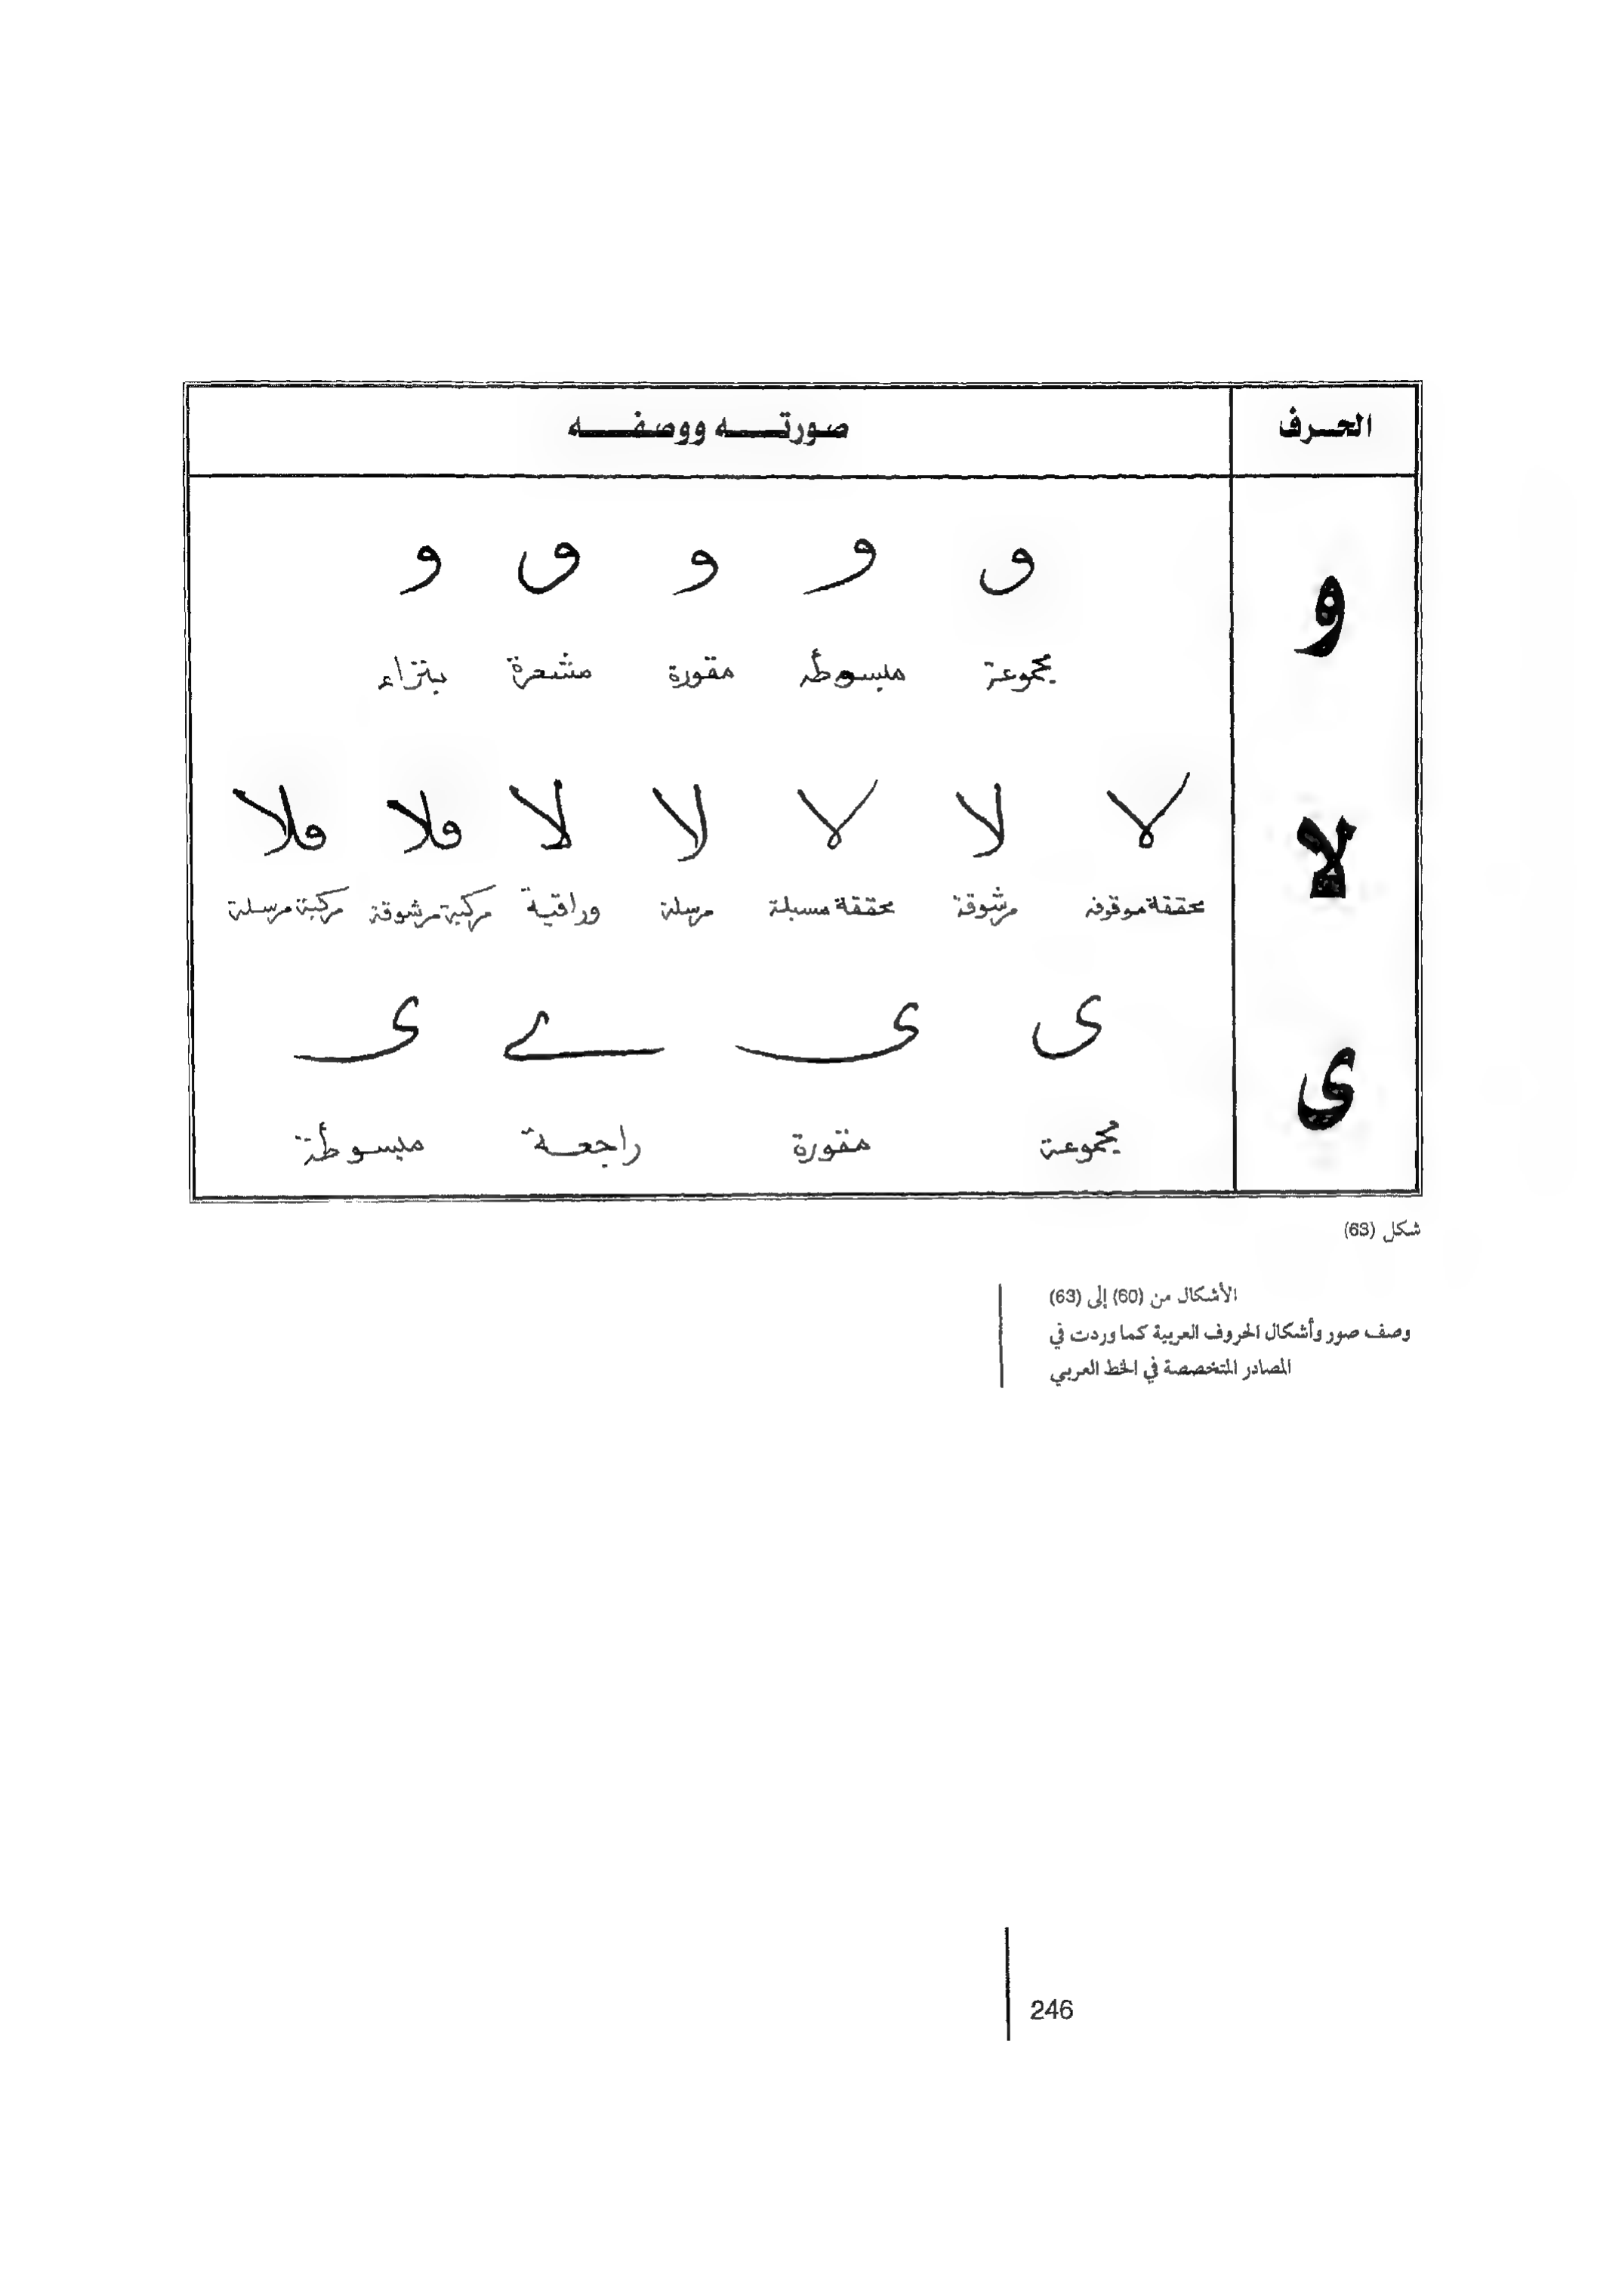 الحرف صورته ووصفه
و و و و و و
مجموعة مبسوطة مقورة مشعرة بتراء
لا لا لا لا لا لا فلا فلا
محققة موقوفه مرشوقة محققة مسبلة مرسلة وراقية مركبة مرشوقة مركبة مرسلة
ى ى ى ے ى
مجموعة مقورة راجعة مبسوطة
شكل (63)
الأشكال من (60) إلى (63)
وصف صور وأشكال الحروف العربية كما وردت في
المصادر المتخصصة في الخط العربي
246